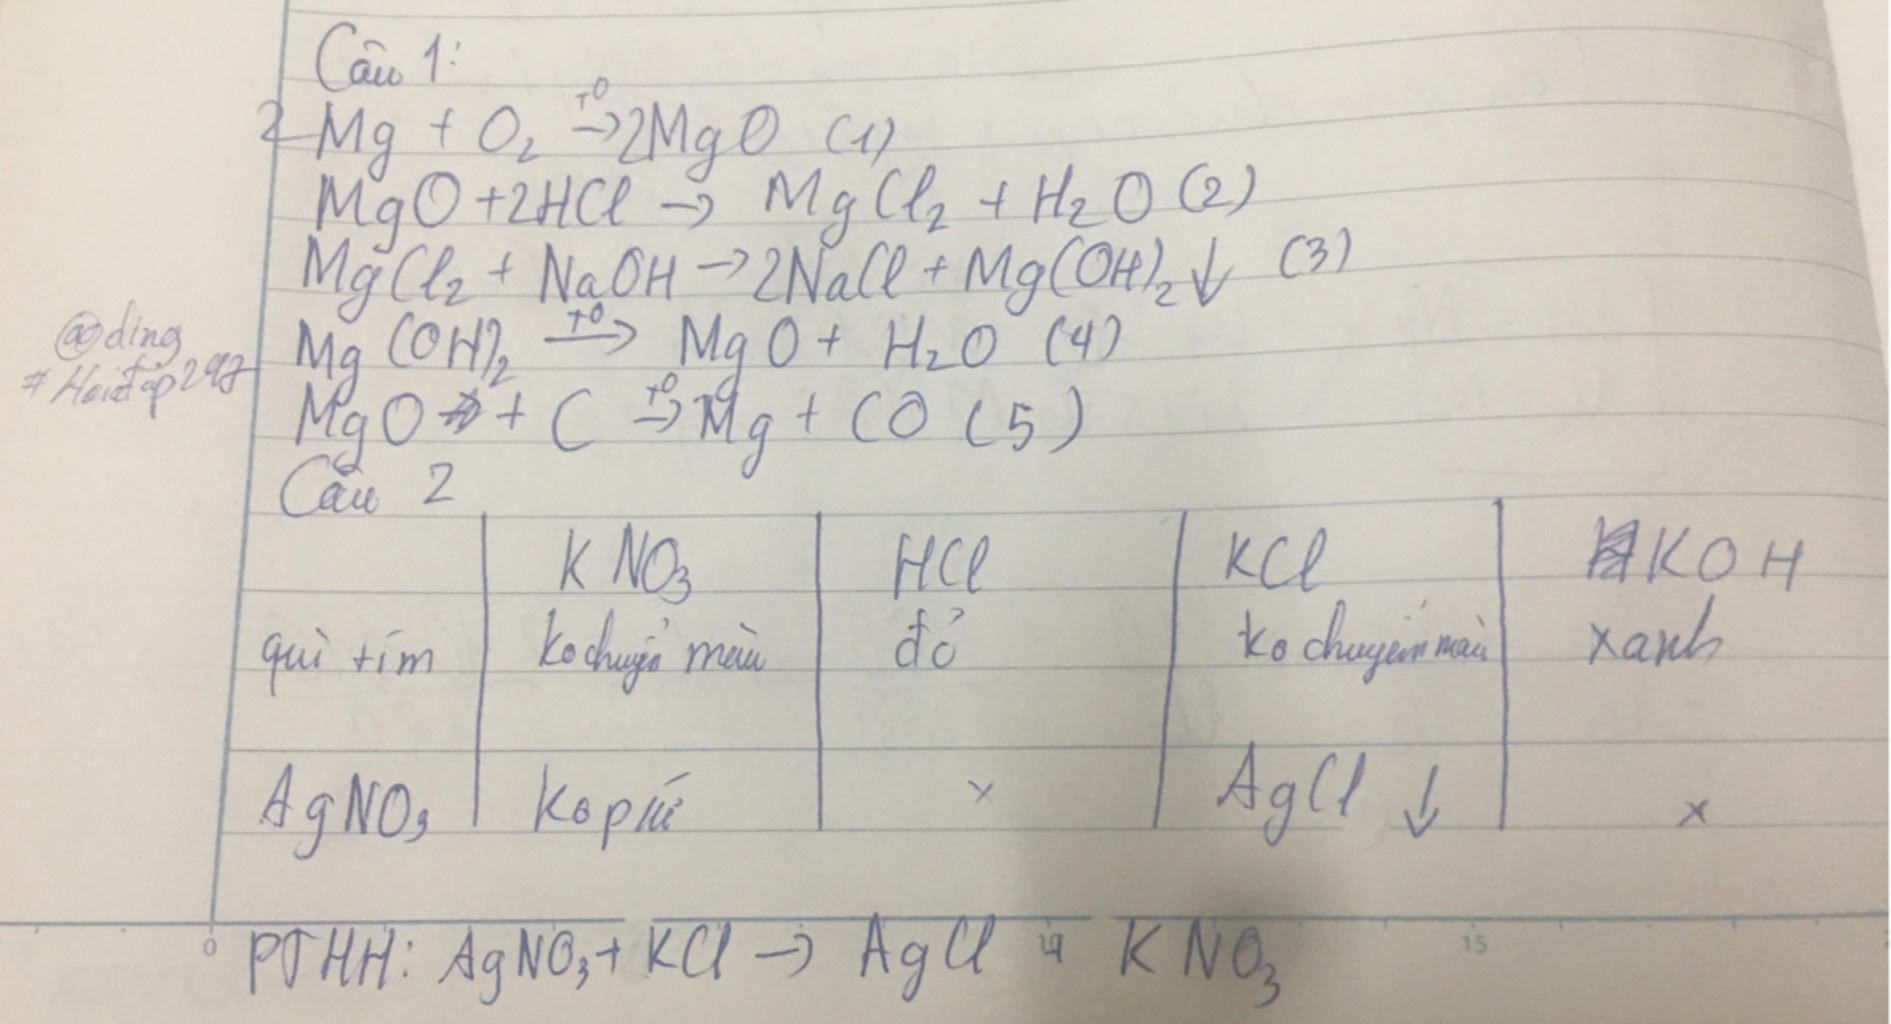 Câu 1:
2Mg + O₂ →ᵗ⁰ 2MgO (1)
MgO + 2HCl → MgCl₂ + H₂O (2)
MgCl₂ + NaOH → 2NaCl + Mg(OH)₂ ↓ (3)
@ding
#Hoiđáp247
Mg(OH)₂ →ᵗ⁰ MgO + H₂O (4)
MgO + C →ᵗ⁰ Mg + CO (5)
Câu 2
KNO₃ HCl KCl KOH
quì tím ko chuyển màu đỏ ko chuyển màu xanh
AgNO₃ Ko pứ x AgCl ↓ x
0 15
PTHH: AgNO₃ + KCl → AgCl + KNO₃